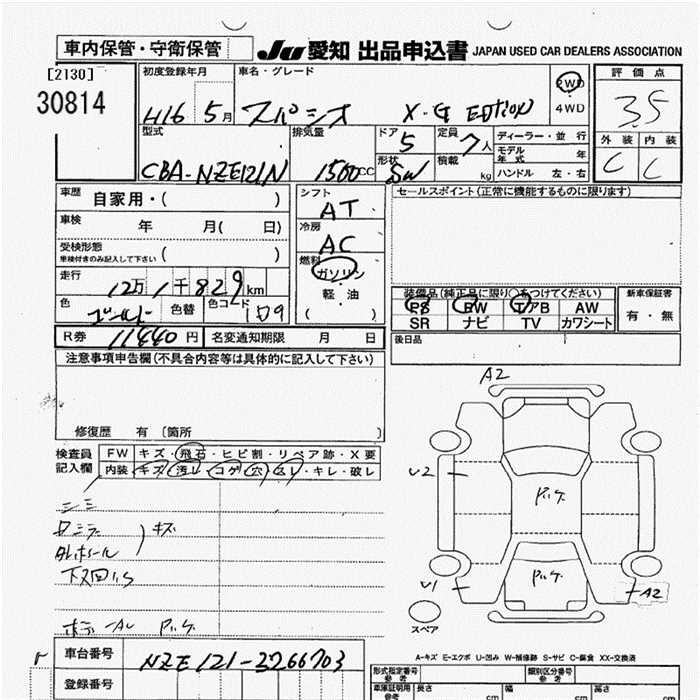 車内保管・守衛保管
JU 愛知 出品申込書 JAPAN USED CAR DEALERS ASSOCIATION
[2130]
30814
初度登録年月
H16 5月
車名・グレード
スパシオ X-G EDITION
2WD
4WD
評価点
3.5
外装 内装
C C
型式
CBA-NZE121N
排気量
1500cc
ドア 5
形状 SW
定員 7人
積載 kg
ディーラー・並行
モデル年式 年
ハンドル 左・右
車歴 自家用・( )
車検 年 月( 日)
受検形態
車検付きのみ記入して下さい ( )
走行
12万1千829km
色 ゴールド 色替 色コード
シフト
AT
冷房
AC
燃料
ガソリン
軽油
( )
セールスポイント(正常に機能するものに限ります)
装備品(純正品に限り○をつけてください)
PS PW エアB AW
SR ナビ TV カワシート
新車保証書
有・無
後日品
R券 11440円 名変通知期限 月 日
注意事項申告欄(不具合内容等は具体的に記入して下さい)
修復歴 有 〔箇所 〕
検査員記入欄
FW キズ・飛石・ヒビ割・リペア跡・X要
内装 キズ・汚レ・コゲ・穴・スレ・キレ・破レ
シミ
キズ
A2
U2
U1
A2
スペア
A-キズ E-エクボ U-凹み W-補修跡 S-サビ C-腐食 XX-交換済
車台番号 NZE121-3266703
登録番号
形式指定番号 類別区分番号
車庫証明用参考 長さ cm 幅 cm 高さ cm